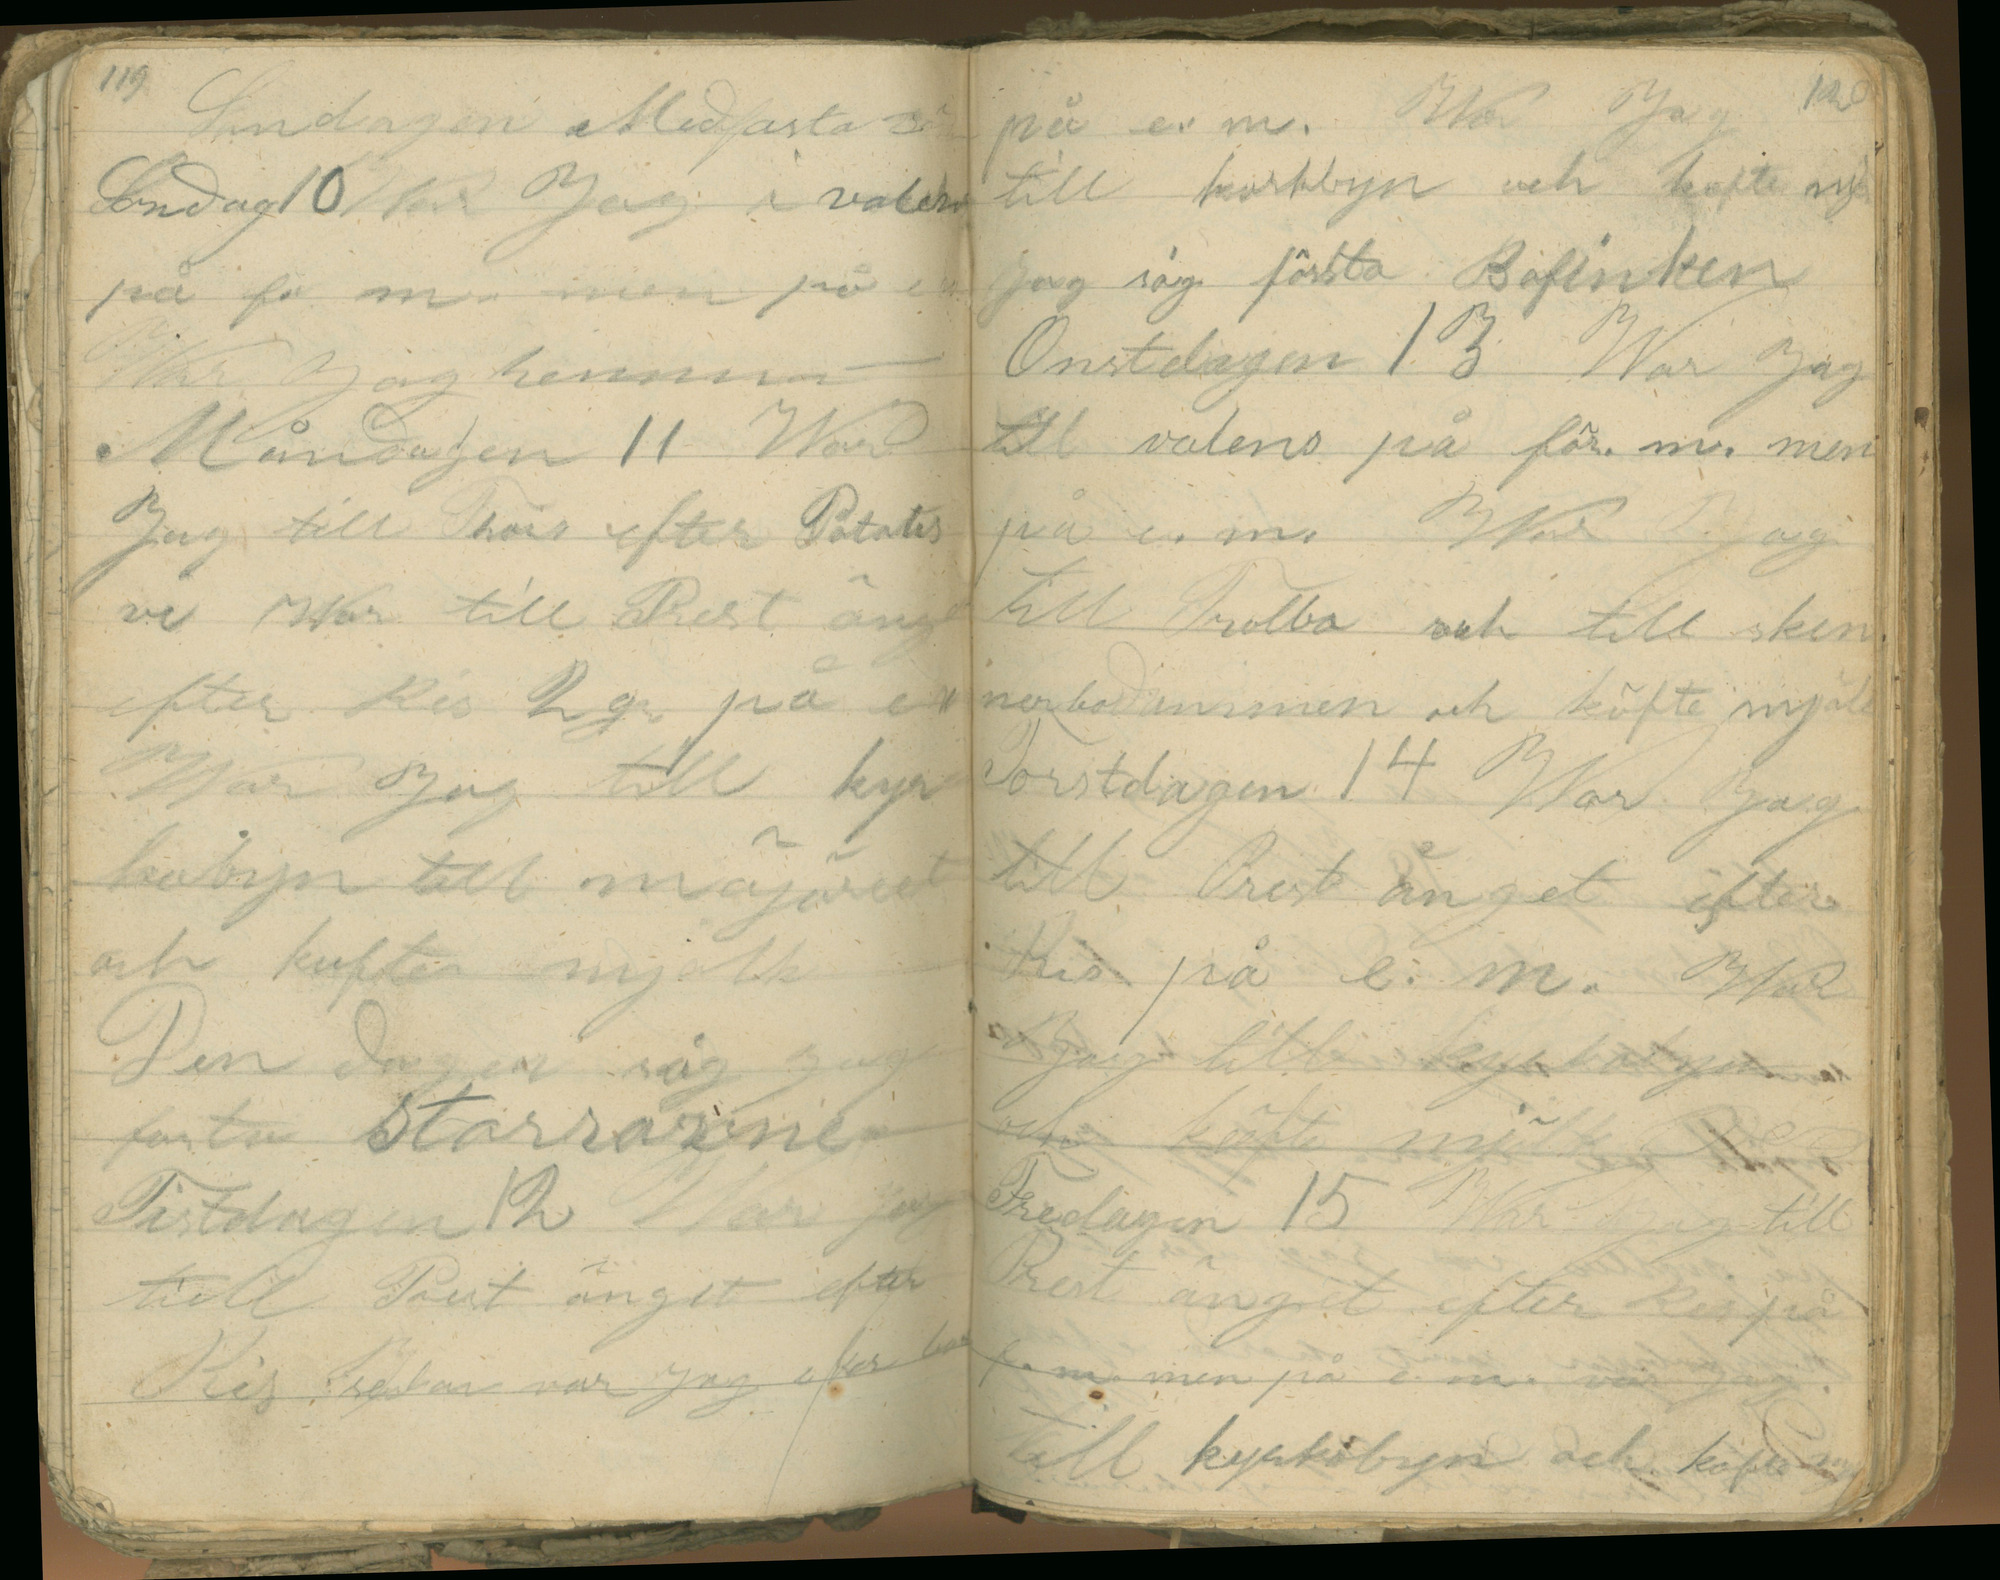 119
Sundagen Medfasta sön
Söndag 10 War Jag i valens
på f. m. men på e m
War Jag hemma
Måndagen 11 War
Jag till Thors efter Potatis
vi War till Prest äng
efter Ris 2 gr på e m
War Jag till kyr
kobyn till mäjäreet
och kufte mjölk
Den dagen såg jag
fösta starrarne
Tistdagen 12 War jag
till Prest änget efter
Ris sedan var jag efter
120
på e. m. War Jag
till korkbyn och kofte mjö
Jag såg första Bofinken
Onstdagen 13 War Jag
till valens på för. m. men
på e. m. War Jag
till Trolbo och till sken
norbodammen och köfte mjölk
Torstdagen 14 War Jag
till Prest änget efter
Ris på e. m. War
Jag till kyrkobyn
och köfte mjölk
Fredagen 15 War Jag till
Prest änget efter Ris på
f. m. men på e. m. var Jag
till kyrkobyn och köfte mj